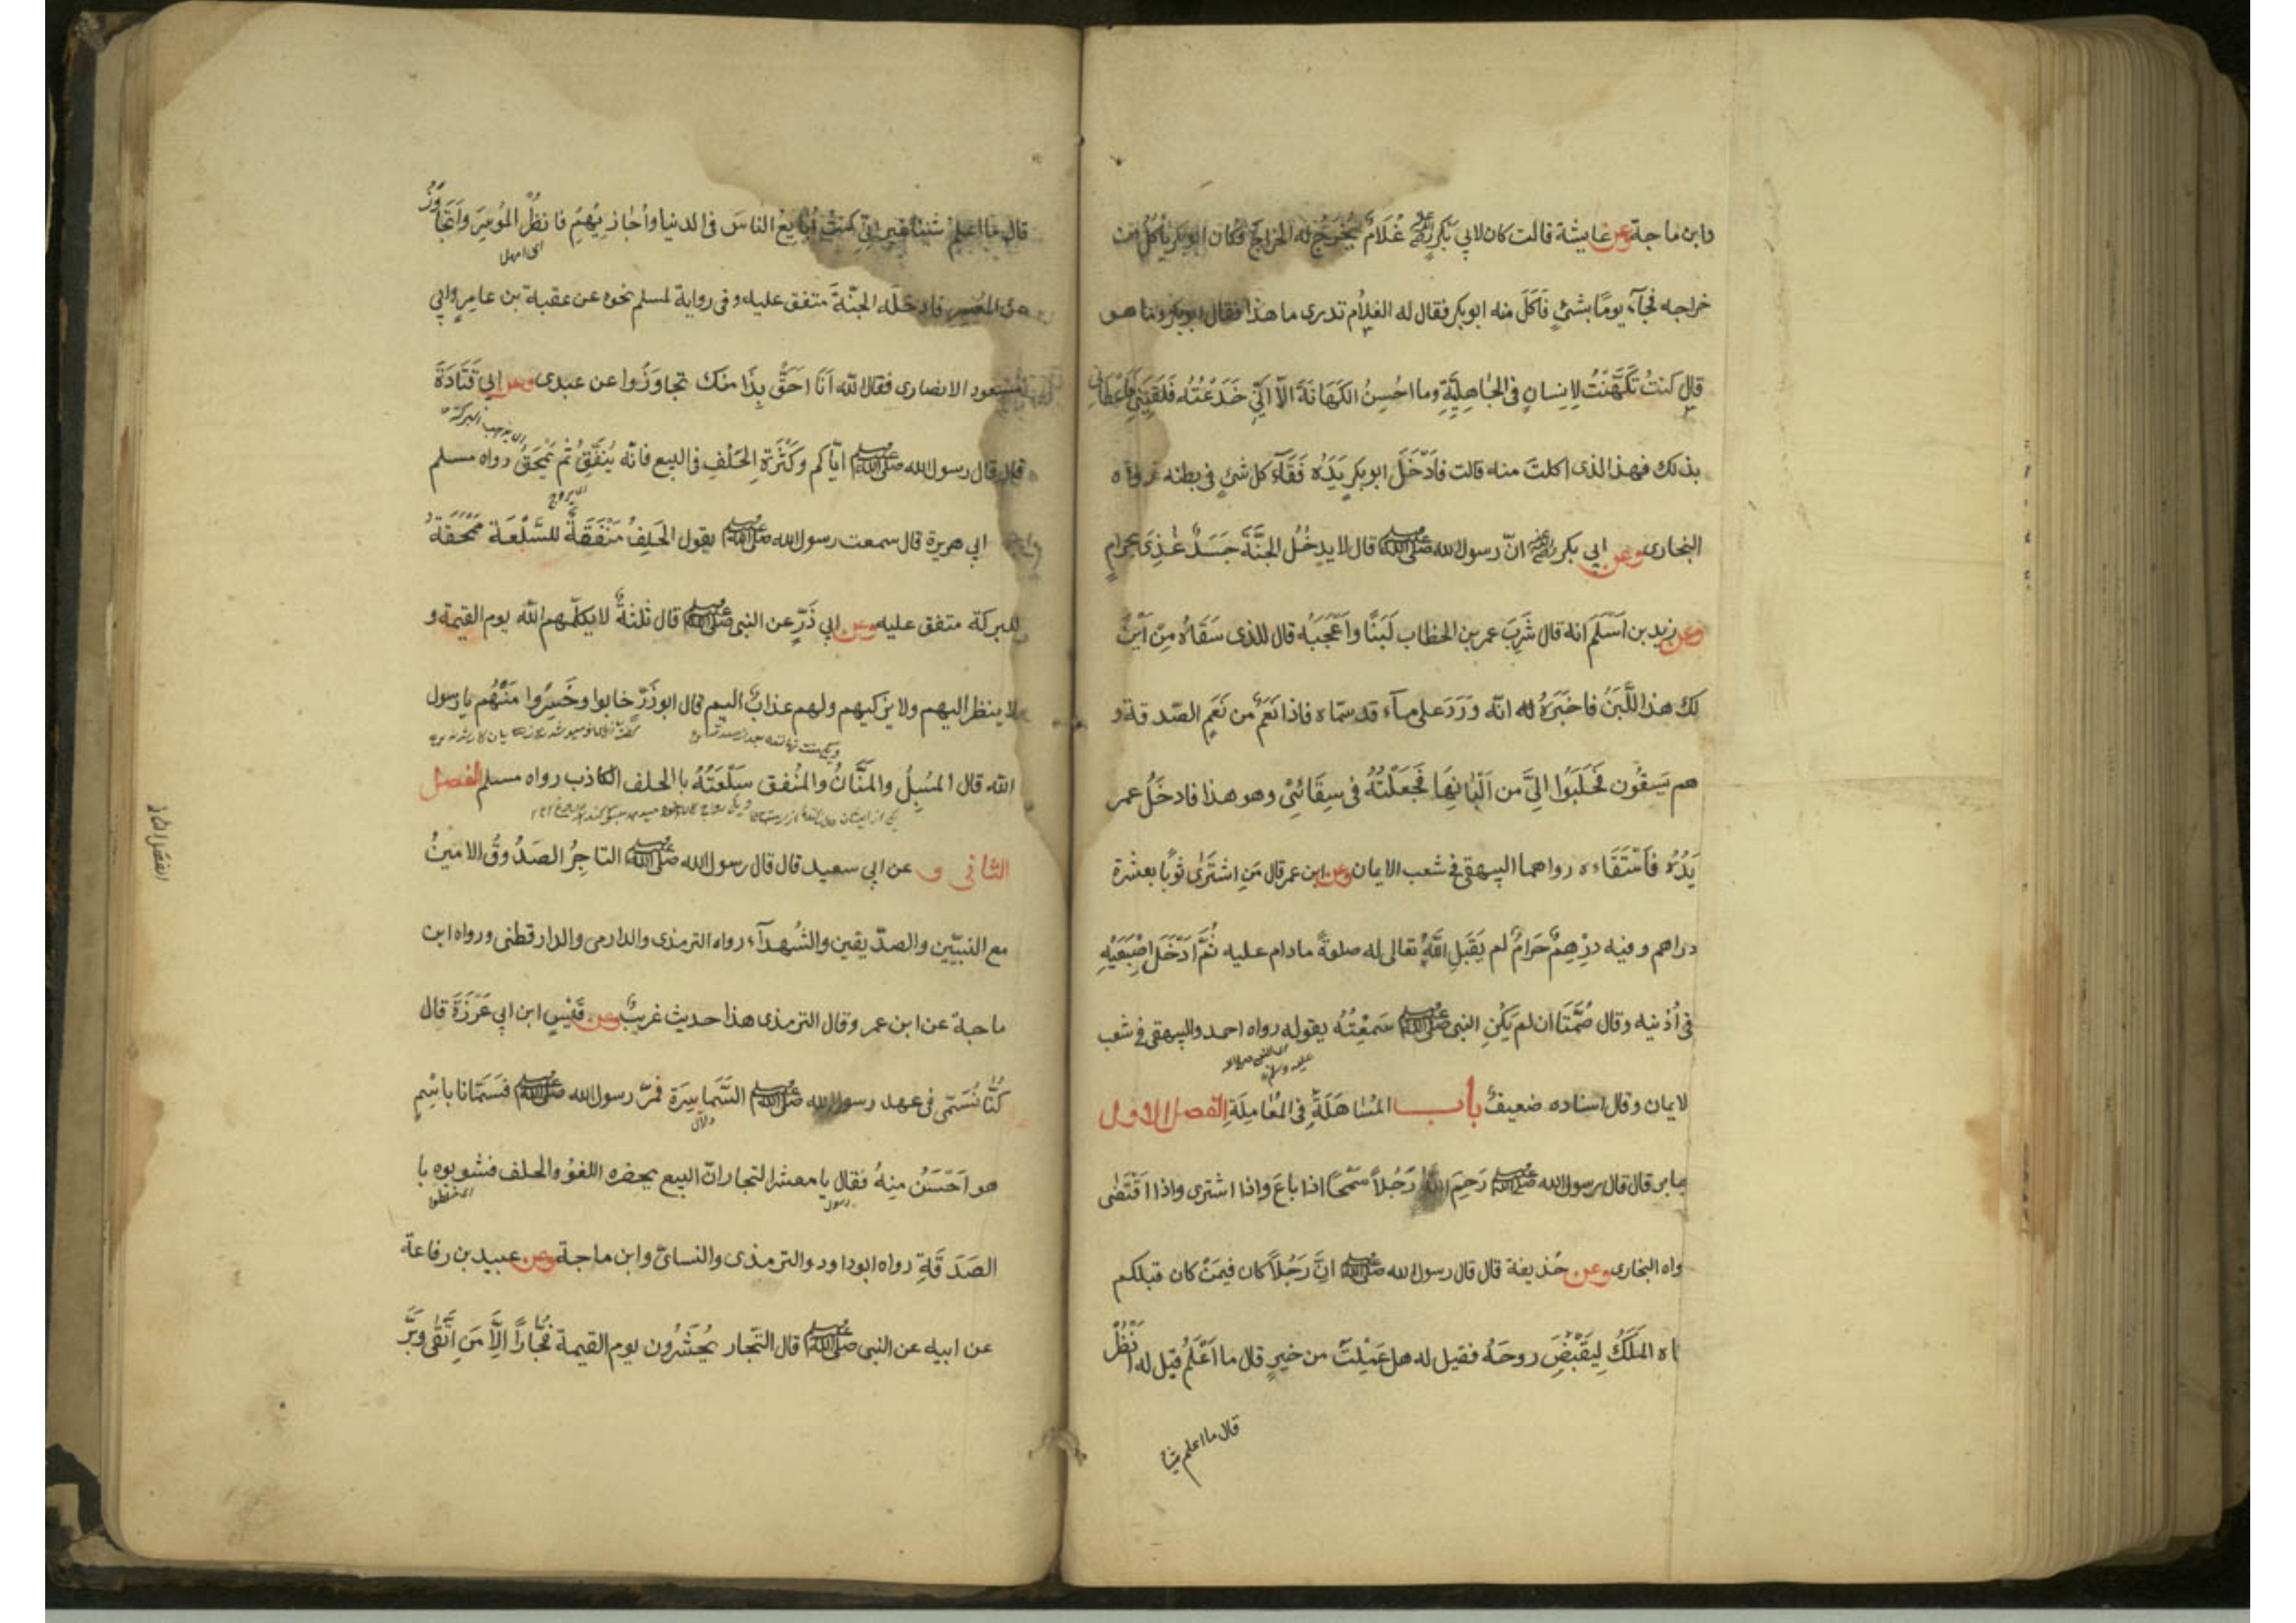 وابن ماجة وعن عايشة قالت كان لابي بَكرٍ رضي الله عنه غُلَامٌ يُخْرِجُ له الخراجَ فكان ابوبكر يأكُلُ من
خراجه فجَآءَ يومًا بشئٍ فَاَكَلَ منه ابوبكر فقال له الغلام تدرى ما هذا فقال ابوبكر وما هو
قال كنتُ تَكَهَّنْتُ لِاِنسانٍ فى الجَاهِلِيَّةِ وما احُسِنُ الكَهَانَةَ الّا اَنّي خَدَعْتُهُ فَلَقِيَنِي فاعْطانى
بذلك فهذا الذى اكلتَ منه قالت فاَدْخَلَ ابوبكرٍ يَدَهُ فَقَآءَ كل شئٍ فى بطنه رواه
البخارى وعن ابي بكر رضي الله عنه انّ رسول الله صلى الله عليه وسلم قال لا يدخُلُ الجنَّةَ جَسَدٌ غُذِىَ بحرامٍ
وعن زيد بن اَسْلَمَ انه قال شَرِبَ عمر بن الخطاب لَبَنًا واَعْجَبَهُ قال للذى سَقَاهُ مِنْ اَيْنَ
لك هذا اللَّبَنُ فاخبَرَهُ انّه وَرَدَ على مآءٍ قد سمّاه فاذا نَعَمٌ من نَعَمِ الصّدقة و
هم يَسقُون فحَلَبُوا الِيَّ من اَلْبانِهَا فجَعَلْتُهُ فى سِقَائِىْ وهو هذا فادخَلَ عمر
يَدَهُ فاَسْتَقَاءه رواهما البيهقى فى شعب الايمان وعن ابن عمر قال مَنِ اشتَرٰى ثوبًا بعشرة
دراهم وفيه درْهِمٌ حَرَامٌ لم يَقْبَلِ اللّٰهُ تعالى له صلوةً مادام عليه ثُمَّ اَدْخَلَ اِصْبَعَيْهِ
فى اُذنيه وقال صُمَّتَا ان لم يَكُنِ النبى صلى الله عليه وسلم سَمعْتُهُ يقوله رواه احمد والبيهقى فى شعب
لايمان وقال اسناده ضعيفٌ باب المسَاهَلَةِ فى المعَامِلَةِ الفصل الاول
جابر قال قال رسول الله صلى الله عليه وسلم رَحِمَ اللهُ رَجُلاً سَمْحًا اذا باعَ واذا اشترى واذا اقْتَضٰى
واه البخارى وعن حُذيفة قال قال رسول الله صلى الله عليه وسلم انَّ رَجُلاً كان فيمَنْ كان قبلكم
اه المَلَكُ لِيَقْبْضَ روحَهُ فقيل له هل عَمِلْتَ من خيرٍ قال ما اَعْلَمُ قيل له انْظُرْ
قال ما اعلم شيأ
قال ما اعلمُ شيئا غير انّي كنتُ اُبَايِعُ الناسَ فى الدنيا واُجَازِيْهِمْ فانظُرُ المُوسِرَ واَتَجاوَزُ
اى امهل
عن المُعْسِر فادخلَه الجنّةَ متفق عليه وفى رواية لمسلم نحوه عن عقبة بن عامرٍ وابي
مسعود الانصارى فقال اللّه اَنَا اَحَقُّ بِذَا منك تجاوَزُوا عن عبدى وعن ابي قَتَادَةَ
قال قال رسول الله صلى الله عليه وسلم ايّاكم وكَثْرَةِ الحَلْفِ فى البيع فانّه يُنَفِّقُ ثُمَّ يَمْحَقُ رواه مسلم
ابي هريرة قال سمعت رسول الله صلى الله عليه وسلم يقول الحَلِفُ مَنْفَقَةٌ للسِّلْعَة مَمْحَقَةٌ
للبركة متفق عليه وعن ابي ذَرٍّ عن النبى صلى الله عليه وسلم قال ثلثةٌ لا يكلّمهم اللّه يوم القيمة و
لا ينظر اليهم ولا يزكيهم ولهم عذابٌ اليم قال ابوذَرّ خابوا وخَسِرُوا مَنْهُم يا رسول
اللّه قال المسُبِلُ والمَنَّانُ والمُنفق سَلْعَتُهُ با الحلف الكاذب رواه مسلم الفصل
الثانى و عن ابي سعيد قال قال رسول الله صلى الله عليه وسلم التاجِرُ الصَدُوقُ الامينُ
مع النبيّين والصدّيقين والشُهدآء رواه الترمذى والدارمى والدارقطنى ورواه ابن
ماجة عن ابن عمر وقال الترمذى هذا حديث غريبٌ وعن قَيْسِ ابن ابي غَرَزَةَ قال
كُنَّا نُسَمّى فى عهد رسول الله صلى الله عليه وسلم السَّمَاسِرَة فمرّ رسول الله صلى الله عليه وسلم فَسَمّانا باسْمٍ
دلال
هو اَحْسَنُ مِنهُ فقال يا معشر التجار انّ البيع يحضره اللغوُ والحلف فشوبوه با
الصَدَقَةِ رواه ابوداود والترمذى والنسائى وابن ماجة وعن عبيد بن رفاعة
عن ابيه عن النبى صلى الله عليه وسلم قال التّجار يُحْشَرُون يوم القيمة فُجّاراً اِلَّا مَنِ اتَّقٰى وبَرَّ